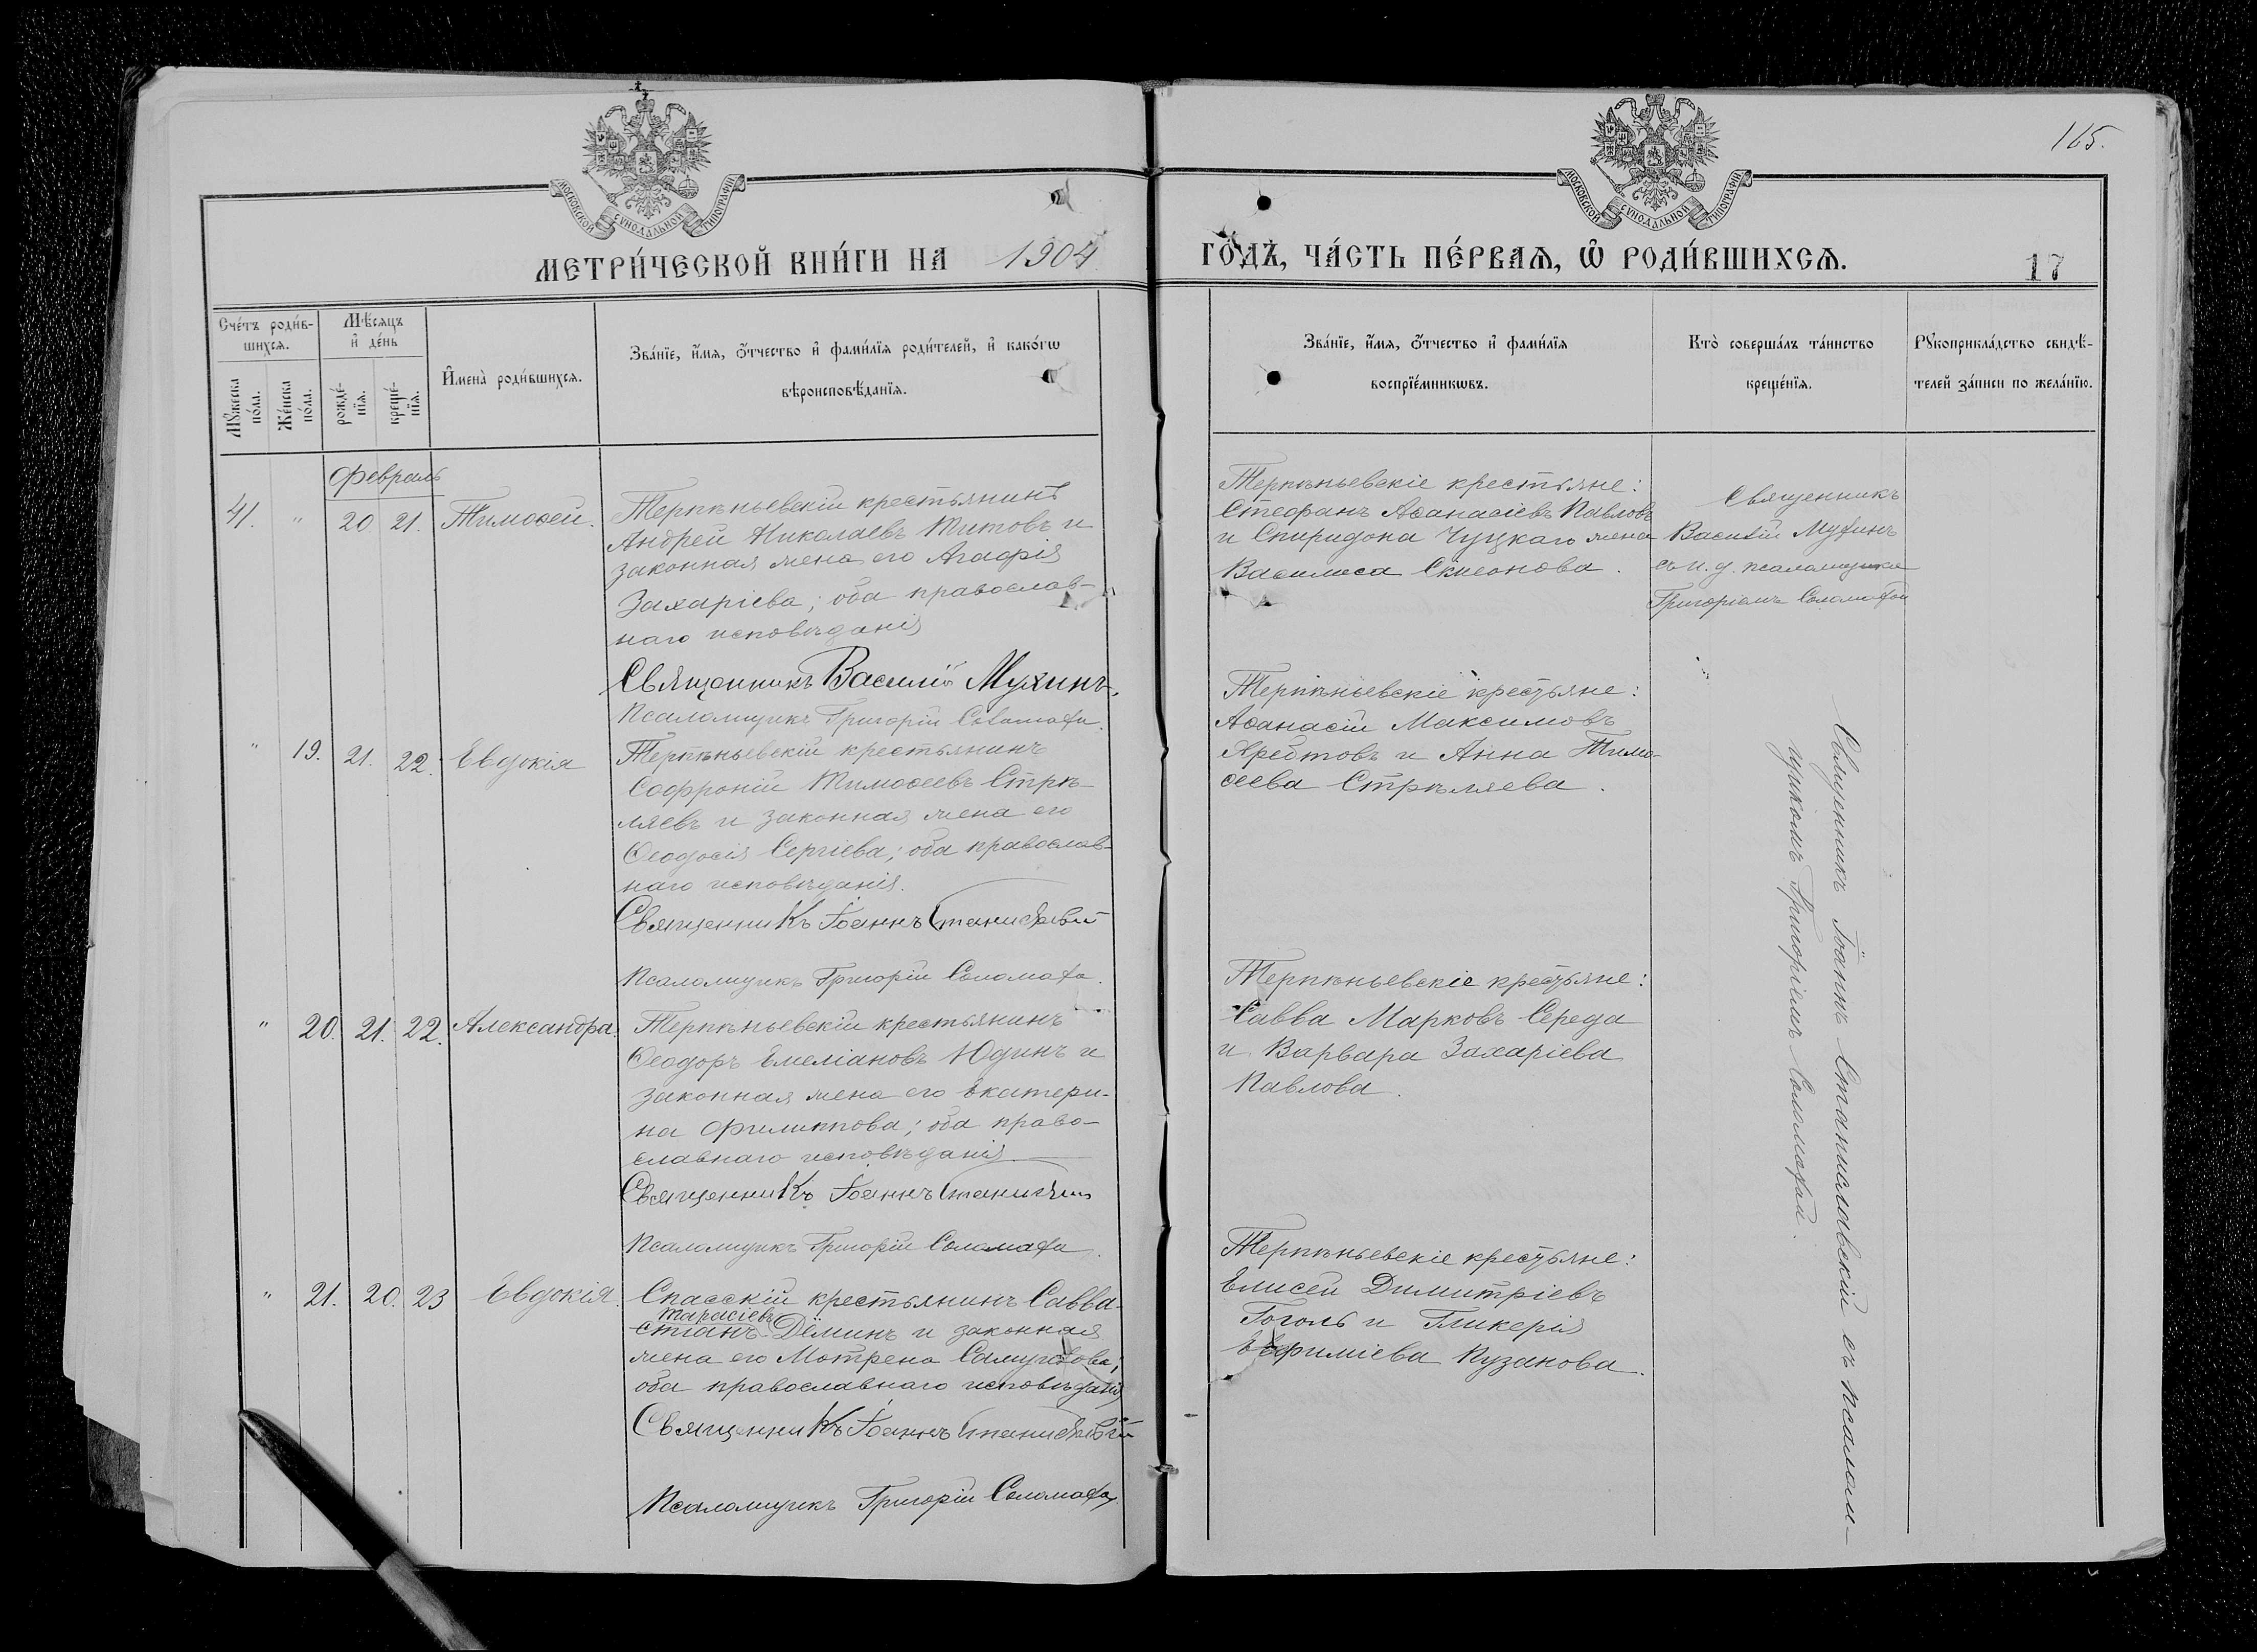 165.
МОСКОВСКОЙ СѴНОДАЛЬНОЙ ТИПОГРАФІИ
МОСКОВСКОЙ СѴНОДАЛЬНОЙ ТИПОГРАФІИ
МЕТРИ́ЧЕСКОЙ КНИ́ГИ НА 1904
ГО́ДЪ, ЧА́СТЬ ПЕ́РВАѦ, Ѡ РОДИ́ВШИХСѦ.
17
Сче́тъ роди́в-
шихсѧ.
Мѣ́сѧцъ
и҆ де́нь
Мꙋ́жеска
по́ла.
Же́нска
по́ла.
рожде́-
нїѧ.
креще́-
нїѧ.
И҆мена̀ роди́вшихсѧ.
Зва́нїе, и҆́мѧ, ѻ҆́тчество и҆ фами́лїѧ роди́телей, и҆ како́гѡ
вѣроисповѣ́данїѧ.
Зва́нїе, и҆́мѧ, ѻ҆́тчество и҆ фами́лїѧ
воспрїе́мникѡвъ.
Кто̀ соверша́лъ та́инство
креще́нїѧ.
Рꙋкоприкла́дство свидѣ́-
телей за́писи по жела́нїю.
Февраль
41. " 20 21. Тимоѳей.
Терпѣньевскій крестьянинъ
Андрей Николаевъ Титовъ и
законная жена его Агафія
Захаріева; оба православ-
наго исповѣданія
Священникъ Василій Мухинъ.
Псаломщикъ Григорій Соломаха.
Терпѣньевскіе крестьяне:
Стефанъ Аѳанасіевъ Павловъ
и Спиридона Чуцкаго жена
Василиса Симеонова.
Священникъ
Василій Мухинъ
съ и. д. псаломщика
Григоріемъ Соломахой
" 19. 21. 22. Евдокія
Терпѣньевскій крестьянинъ
Софроній Тимоѳеевъ Стрѣ-
ляевъ и законная жена его
Ѳеодосія Сергіева; оба православ-
наго исповѣданія.
Священникъ Іоаннъ Станиславскій
Псаломщикъ Григорій Соломаха.
Терпѣньевскіе крестьяне:
Аѳанасій Максимовъ
Арефтовъ и Анна Тимо-
ѳеева Стрѣляева.
Священникъ Іоаннъ Станиславскій съ псалом-
щикомъ Григоріемъ Соломахой.
" 20. 21. 22. Александра.
Терпѣньевскій крестьянинъ
Ѳеодоръ Емеліановъ Юдинъ и
законная жена его Екатери-
на Филиппова; оба право-
славнаго исповѣданія.
Священникъ Іоаннъ Станиславскій
Псаломщикъ Григорій Соломаха.
Терпѣньевскіе крестьяне:
Савва Марковъ Середа
и Варвара Захаріева
Павлова.
" 21. 20. 23 Евдокія.
Спасскій крестьянинъ Савва-
Тарасіевъ
стіанъ Дёминъ и законная
жена его Мотрена Самуилова;
оба православнаго исповѣданія
Священникъ Іоаннъ Станиславскій
Псаломщикъ Григорій Соломаха.
Терпѣньевскіе крестьяне:
Елисей Димитріевъ
Гоголь и Гликерія
Евфиміева Пузанова.